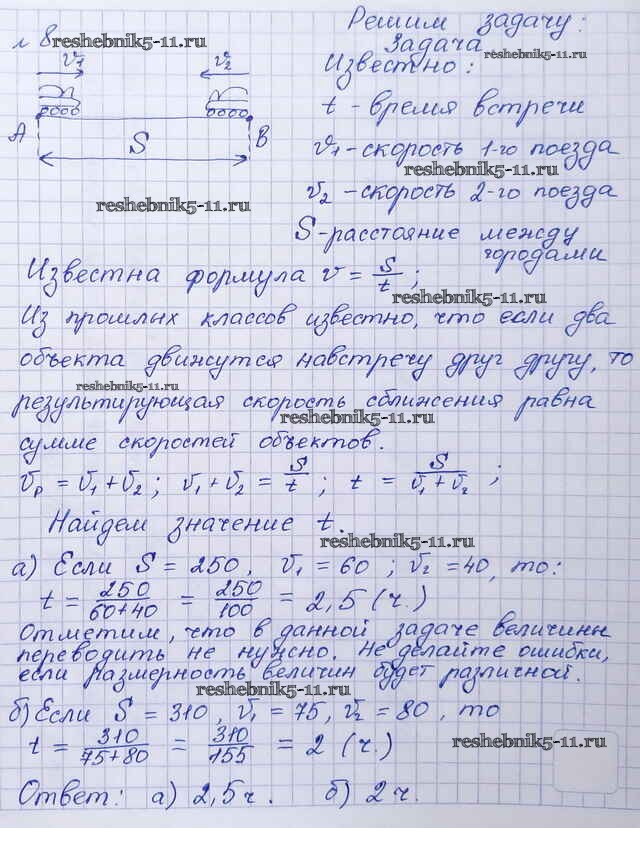 Решим задачу:
№ 8 reshebnik5-11.ru Задача
v1 v2 Известно: reshebnik5-11.ru
t - время встречи
A S B v1 - скорость 1-го поезда
reshebnik5-11.ru
reshebnik5-11.ru v2 - скорость 2-го поезда
S - расстояние между
городами
Известна формула v = S/t ;
reshebnik5-11.ru
Из прошлых классов известно, что если два
объекта движутся навстречу друг другу, то
reshebnik5-11.ru
результирующая скорость сближения равна
reshebnik5-11.ru
сумме скоростей объектов.
vр = v1 + v2 ; v1 + v2 = S/t ; t = S/(v1 + v2) ;
Найдем значение t.
reshebnik5-11.ru
а) Если S = 250, v1 = 60 ; v2 = 40, то:
t = 250/(60+40) = 250/100 = 2,5 (ч.)
Отметим, что в данной задаче величины
переводить не нужно. Не делайте ошибки,
если размерность величин будет различной.
reshebnik5-11.ru
б) Если S = 310, v1 = 75, v2 = 80, то
t = 310/(75+80) = 310/155 = 2 (ч.)
reshebnik5-11.ru
Ответ: а) 2,5 ч. б) 2 ч.